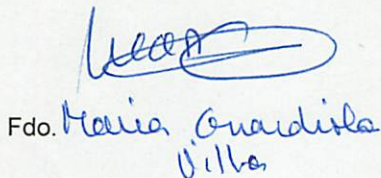 Fdo. Maria Guardiola
Villa